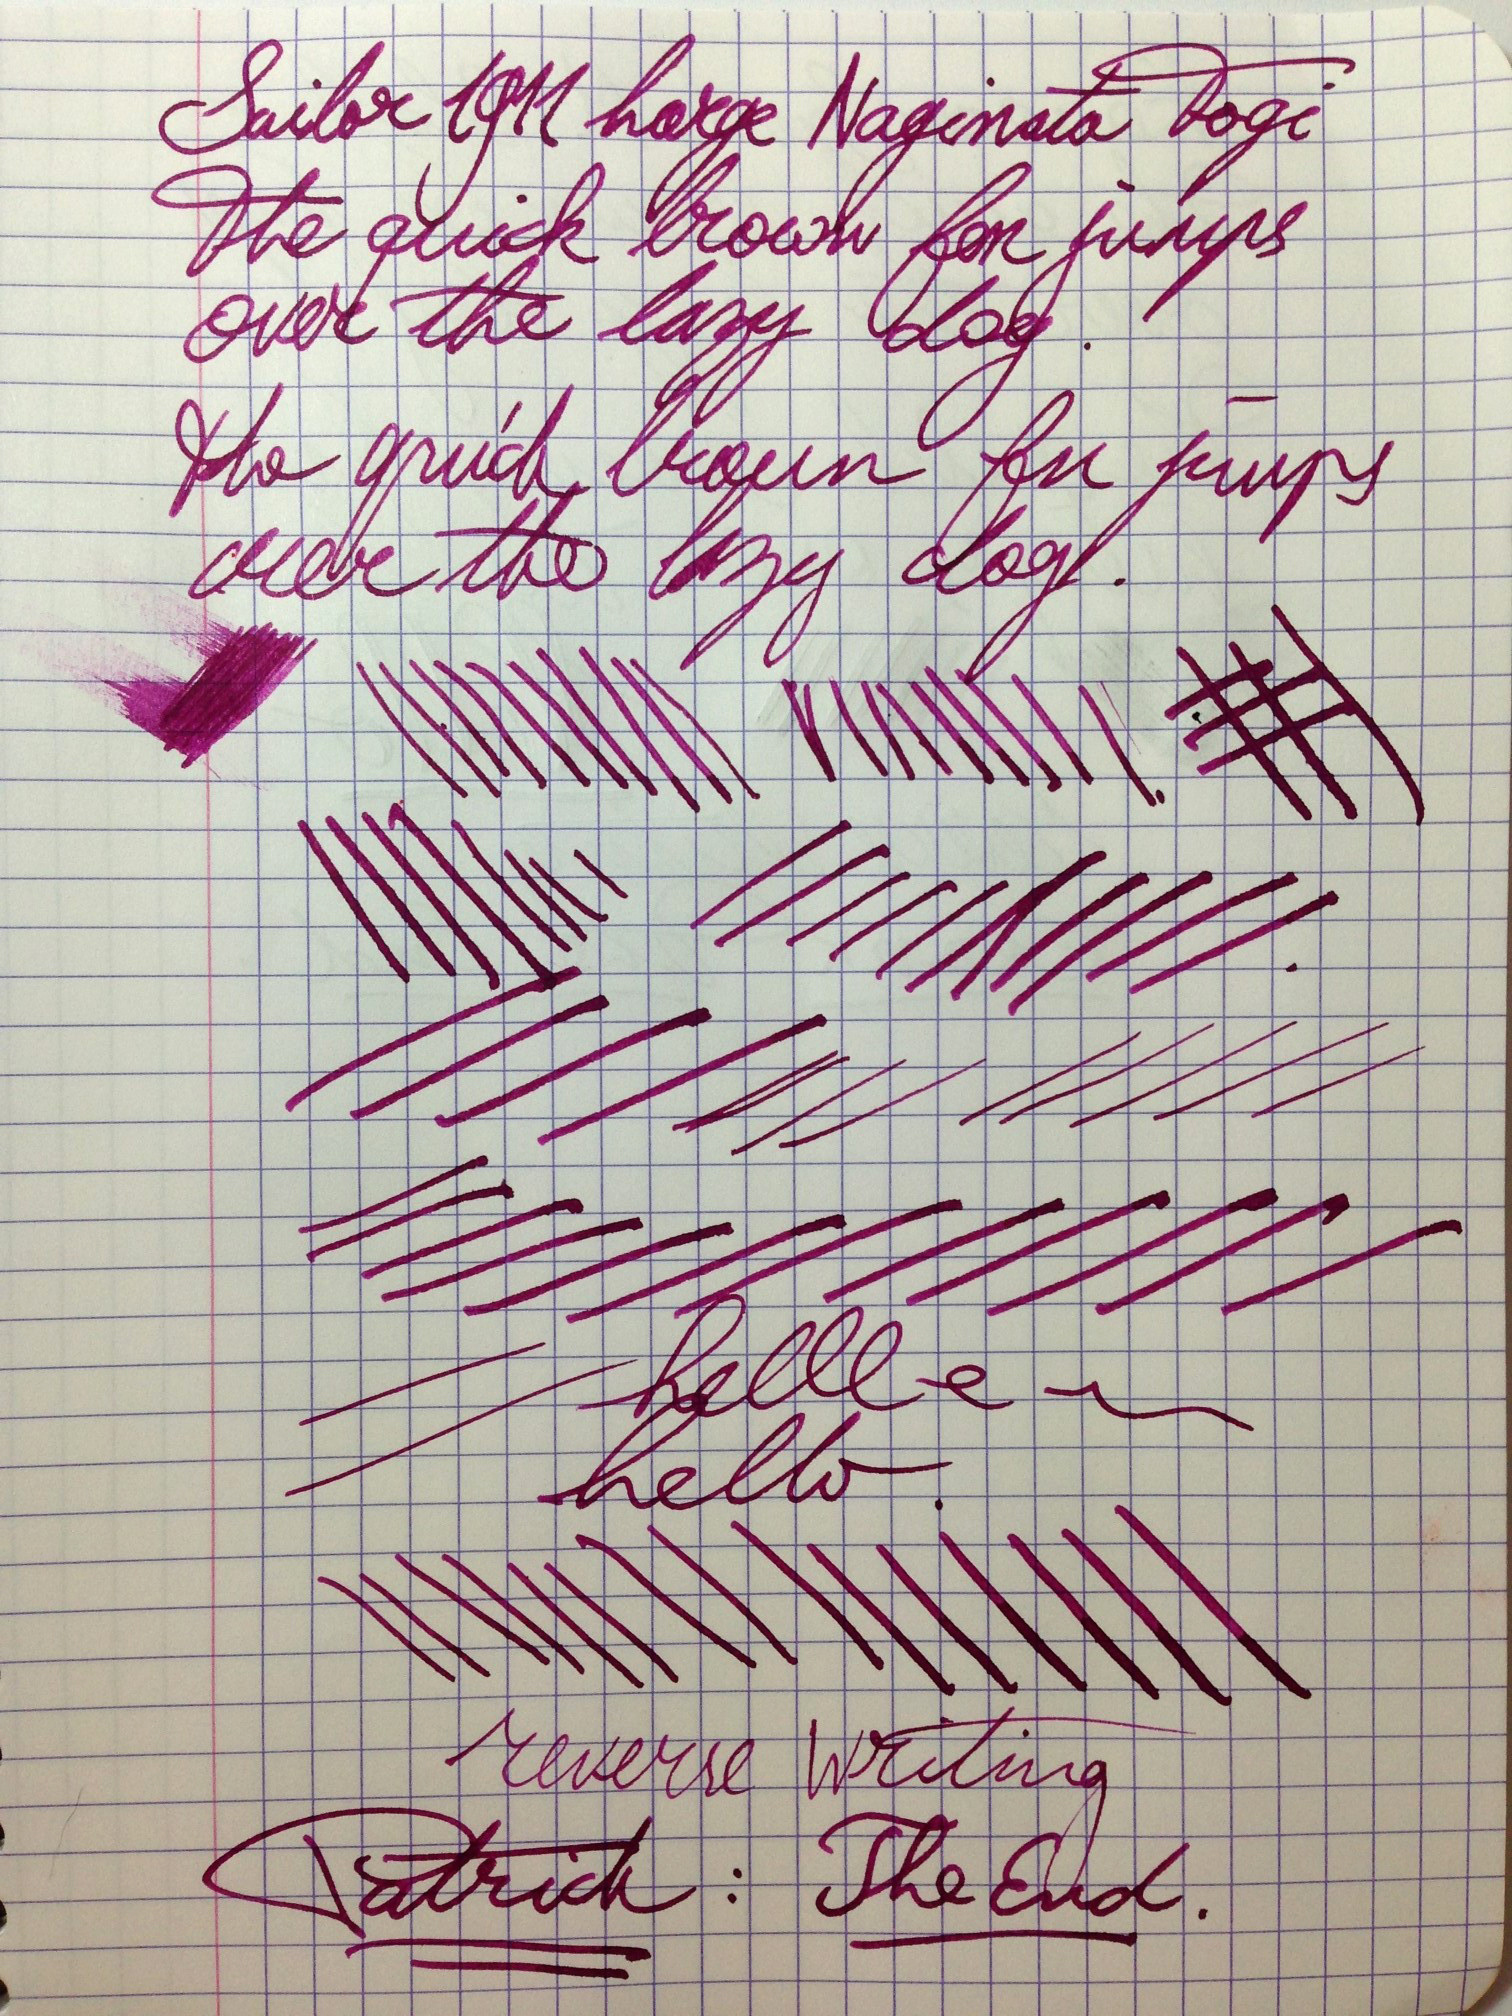 Sailor 1911 Large Naginata Togi
The quick brown fox jumps
over the lazy dog.
The quick brown fox jumps
over the lazy dog.
helll e
hello.
reverse writing
Patrick : The End.